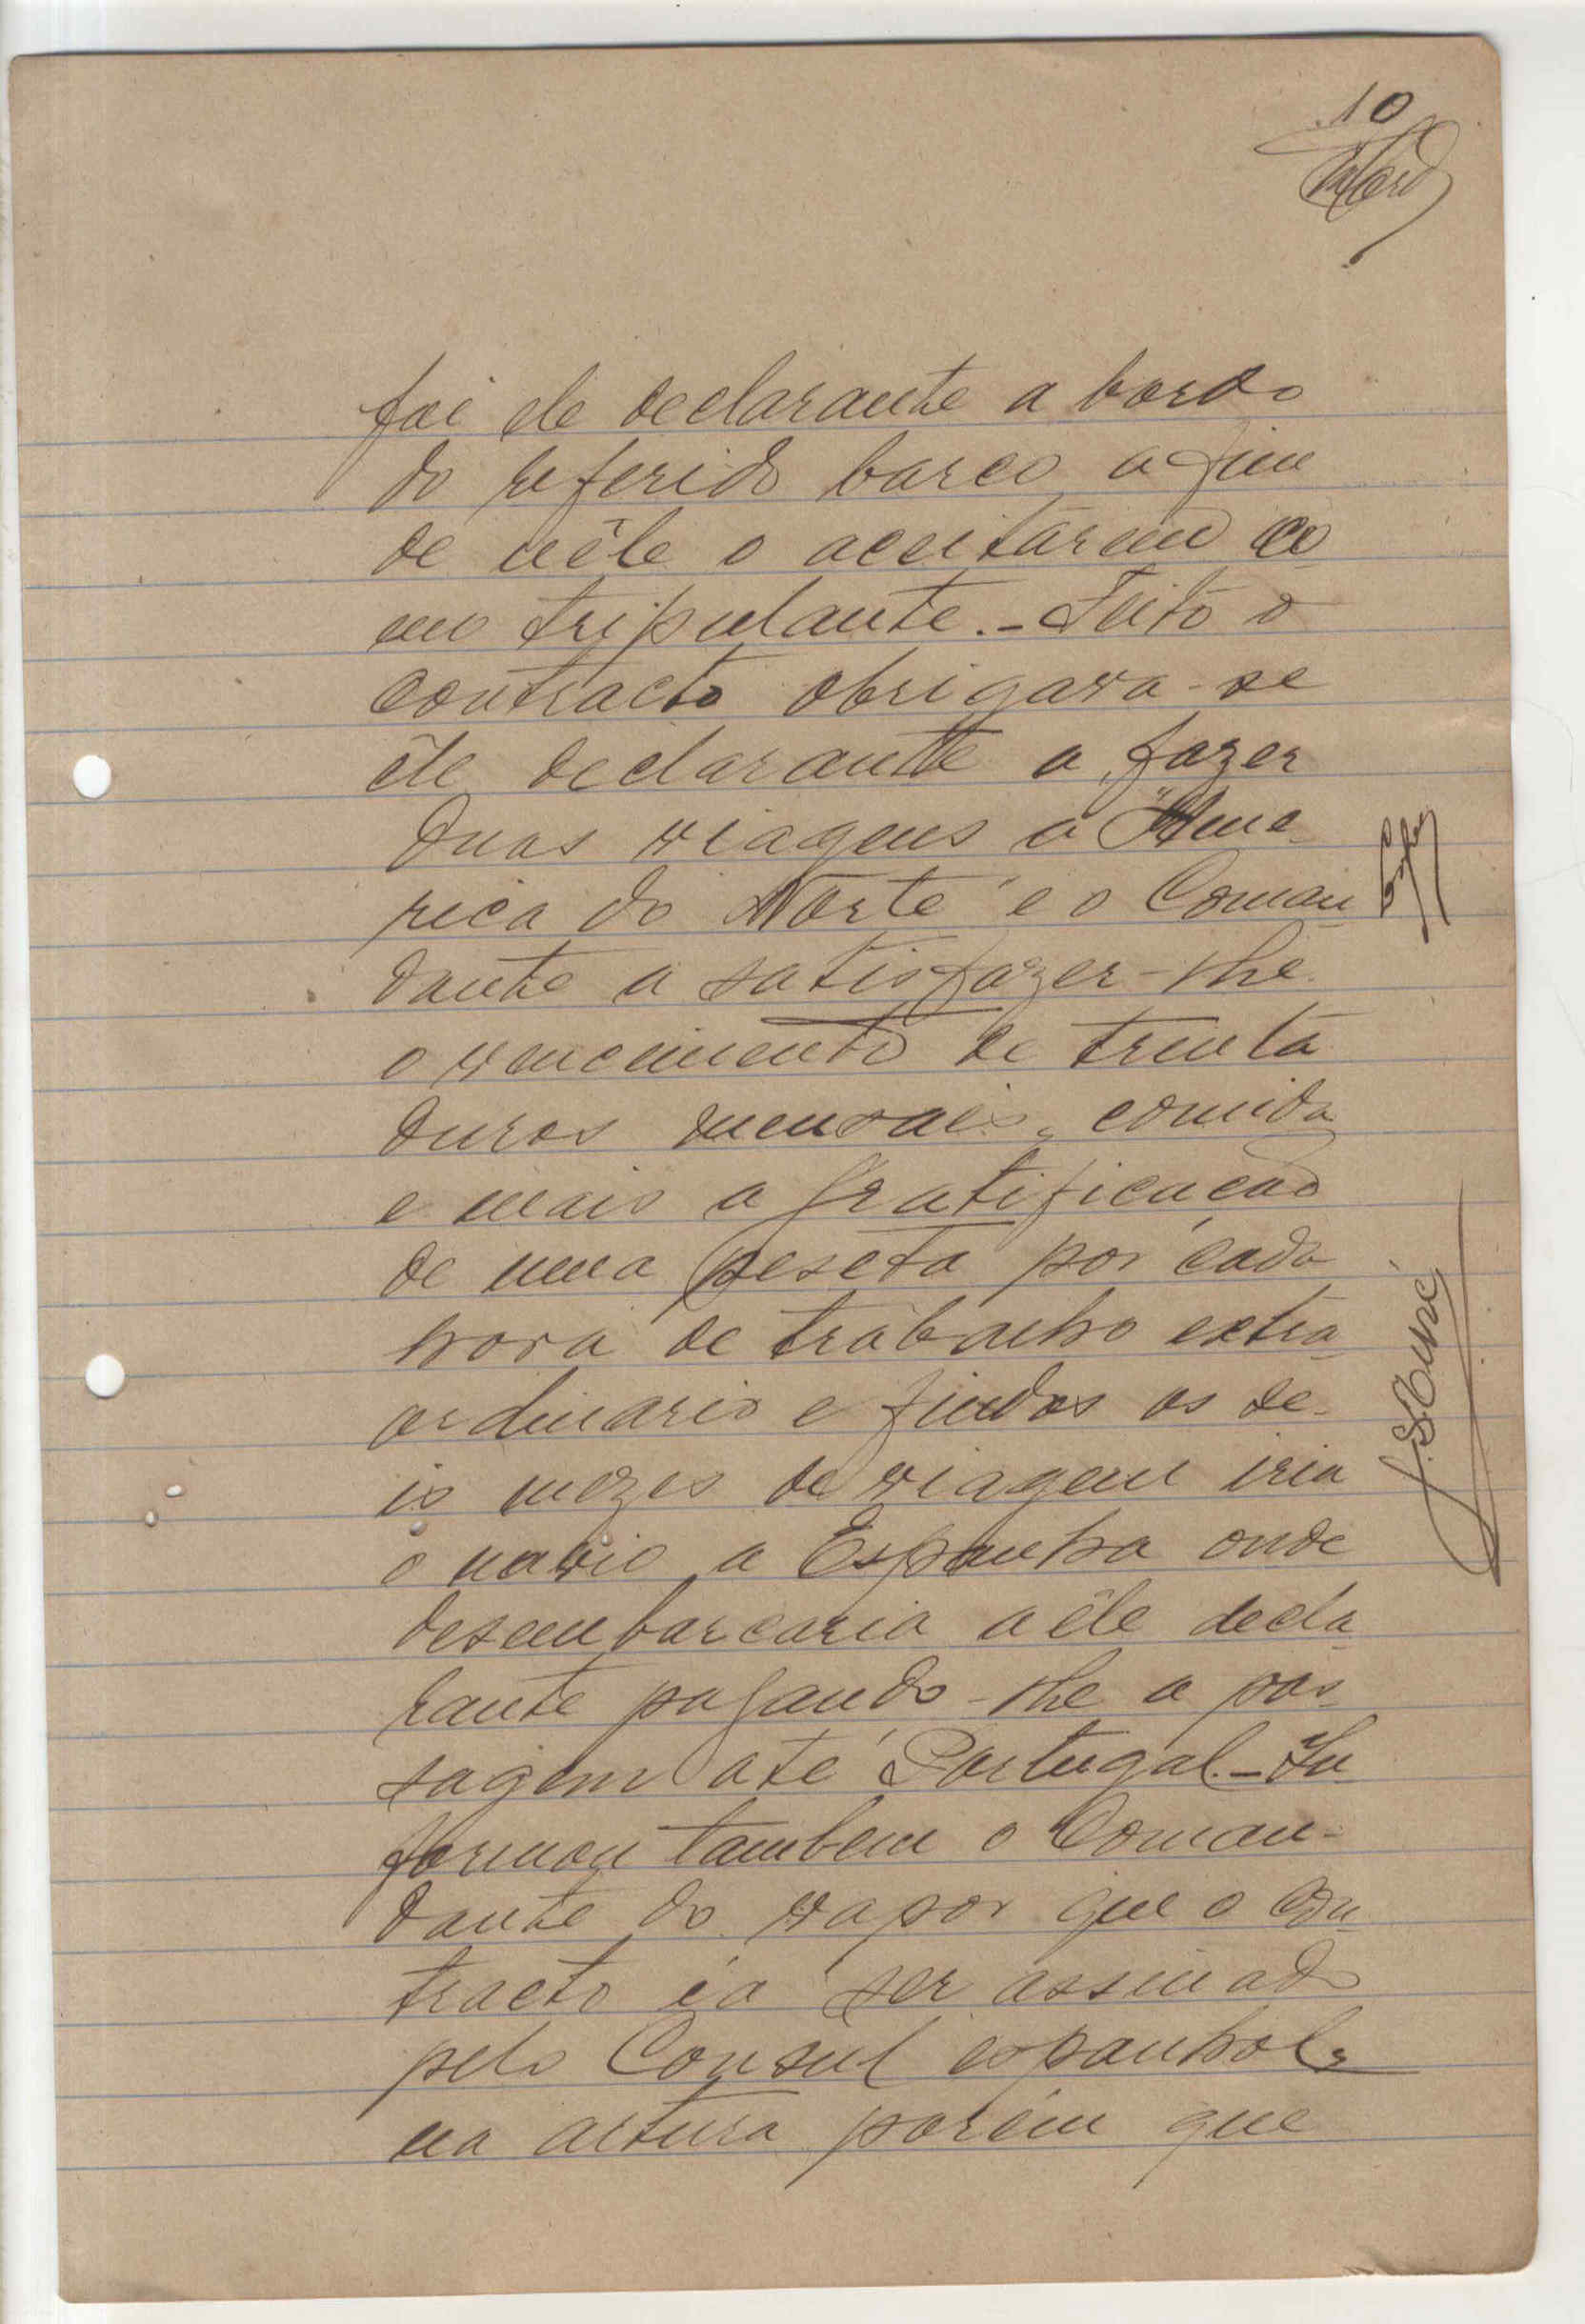 10
foi ele declarante a bordo
do referido barco a fim
de nêle o aceitarem co-
mo tripulante. - Feito o
contracto obrigava-se
êle declarante a fazer
duas viagens á Ame-
rica do Norte e o Coman
dante a satisfazer-lhe
o vencimento de trinta
duros mensais, comida
e mais a gratificação
de uma peseta por cada
hora de trabalho extra-
ordinario e findos os se-
is mezes de viagem iria
o navio a Espanha onde
desembarcaria a êle decla
rante pagando-lhe a pas-
sagem até Portugal. - In-
formou tambem o Coman-
dante do vapor que o con
tracto ia ser assinado
pelo Consul espanhol,
na altura porém que